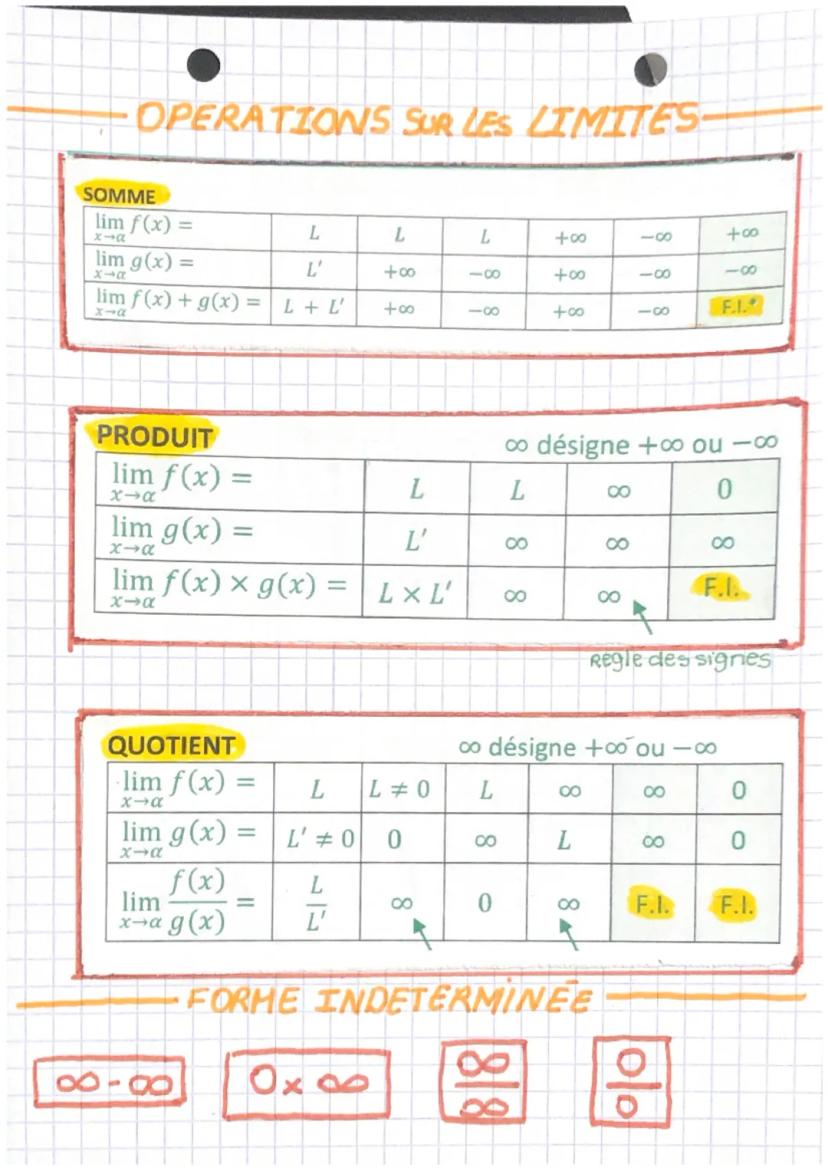 OPERATIONS SUR LES LIMITES
SOMME
lim x→α f(x) = L L L +∞ −∞ +∞
lim x→α g(x) = L' +∞ −∞ +∞ −∞ −∞
lim x→α f(x) + g(x) = L + L' +∞ −∞ +∞ −∞ F.I.*
PRODUIT ∞ désigne +∞ ou −∞
lim x→α f(x) = L L ∞ 0
lim x→α g(x) = L' ∞ ∞ ∞
lim x→α f(x) × g(x) = L × L' ∞ ∞ F.I.
Règle des signes
QUOTIENT ∞ désigne +∞ ou −∞
lim x→α f(x) = L L ≠ 0 L ∞ ∞ 0
lim x→α g(x) = L' ≠ 0 0 ∞ L ∞ 0
lim x→α f(x)/g(x) = L/L' ∞ 0 ∞ F.I. F.I.
FORME INDETERMINÉE
∞ - ∞ 0 × ∞ ∞/∞ 0/0